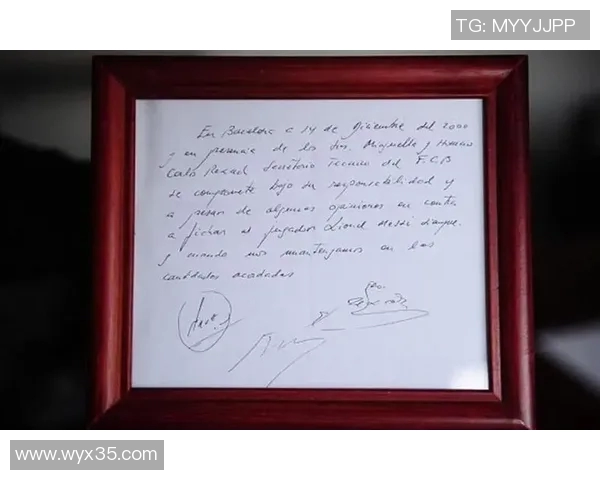 TG: MYYJJPP
En Barcelona a 14 de Diciembre del 2000
y en presencia de los Sres. Minguella y Horacio
Carlos Rexach Secretario Tecnico del F.C.B
se compromete bajo su responsabilidad y
a pesar de algunas opiniones en contra
a fichar al jugador Lionel Messi siempre
y cuando nos mantengamos en las
cantidades acordadas
www.wyx35.com